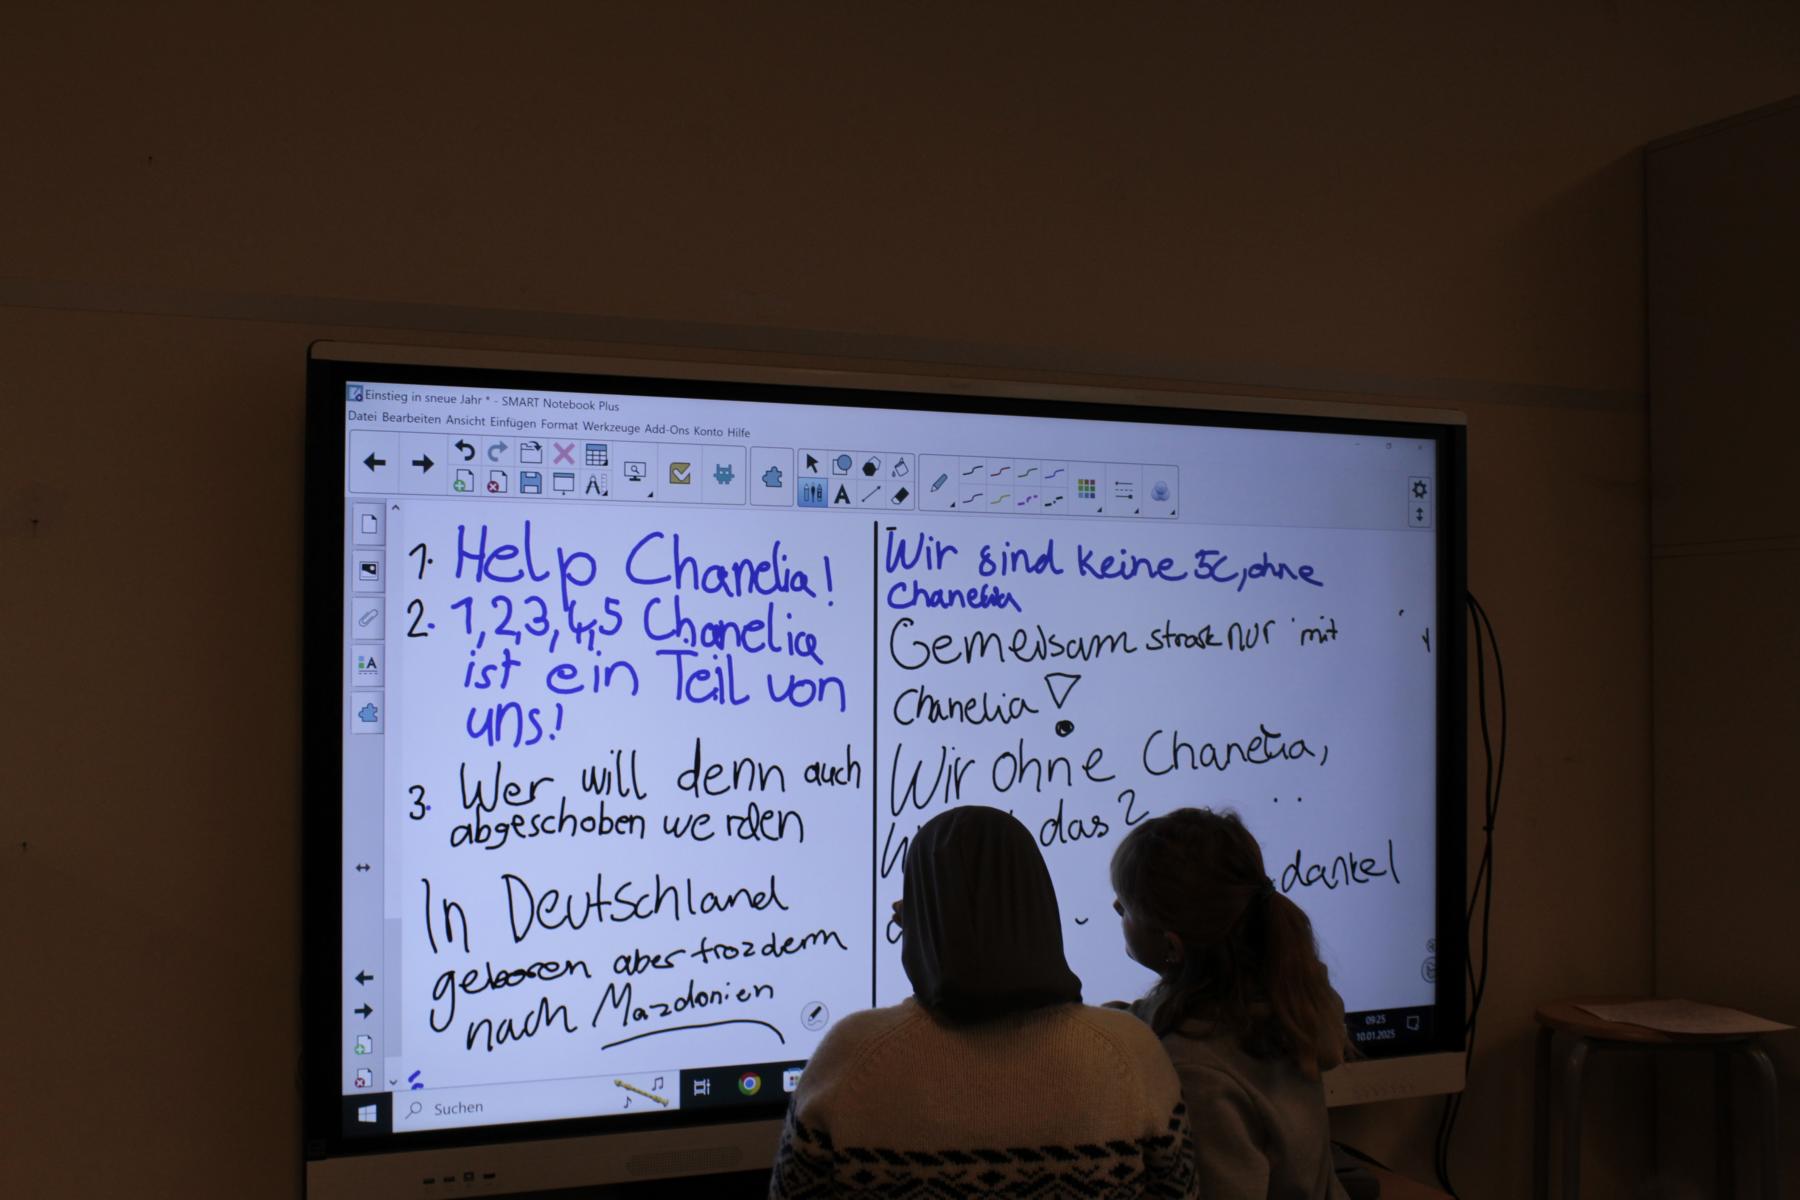 Einstieg in sneue Jahr * - SMART Notebook Plus
Datei Bearbeiten Ansicht Einfügen Format Werkzeuge Add-Ons Konto Hilfe
1. Help Chanelia!
2. 1,2,3,4,5 Chanelia
ist ein Teil von
uns!
3. Wer will denn auch
abgeschoben werden
In Deutschland
geboren aber trozdemm
nach Mazdonien
Wir sind keine 5c, ohne
Chanelia
Gemeisam strak nur mit
Chanelia!
Wir ohne Chanelia,
das?
dankel
Suchen
09:25
10.01.2025